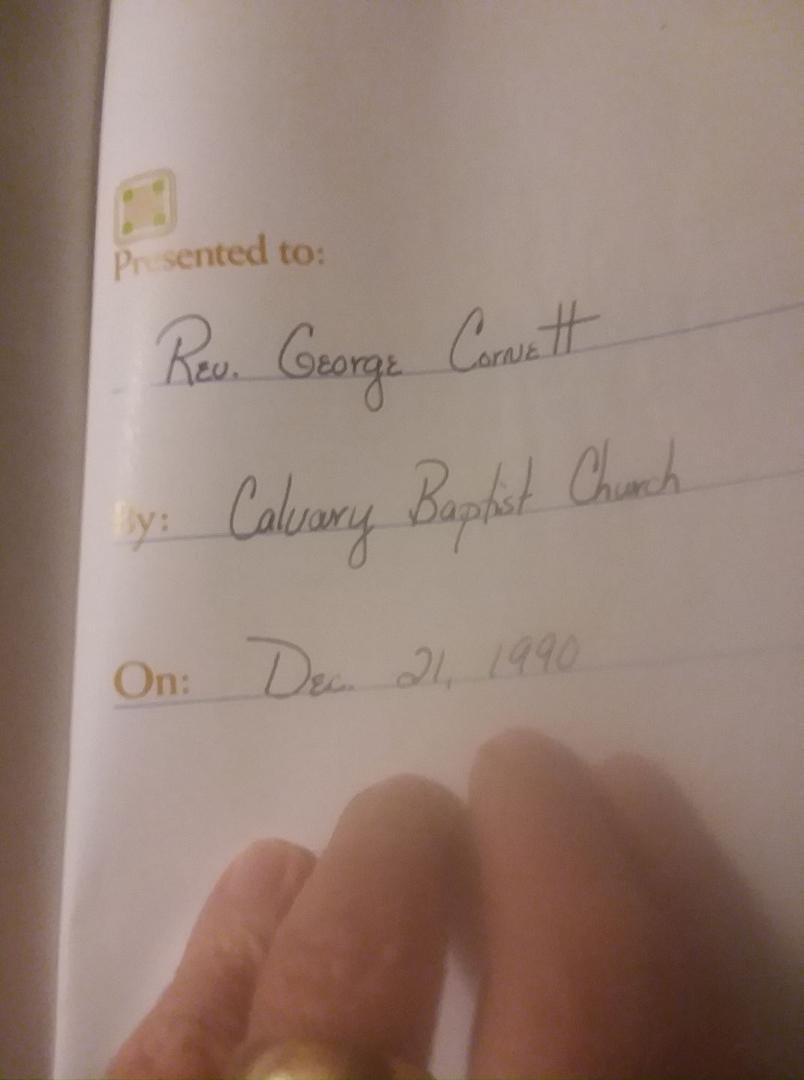 Presented to:
Rev. George Cornett
By: Calvary Baptist Church
On: Dec. 21, 1990